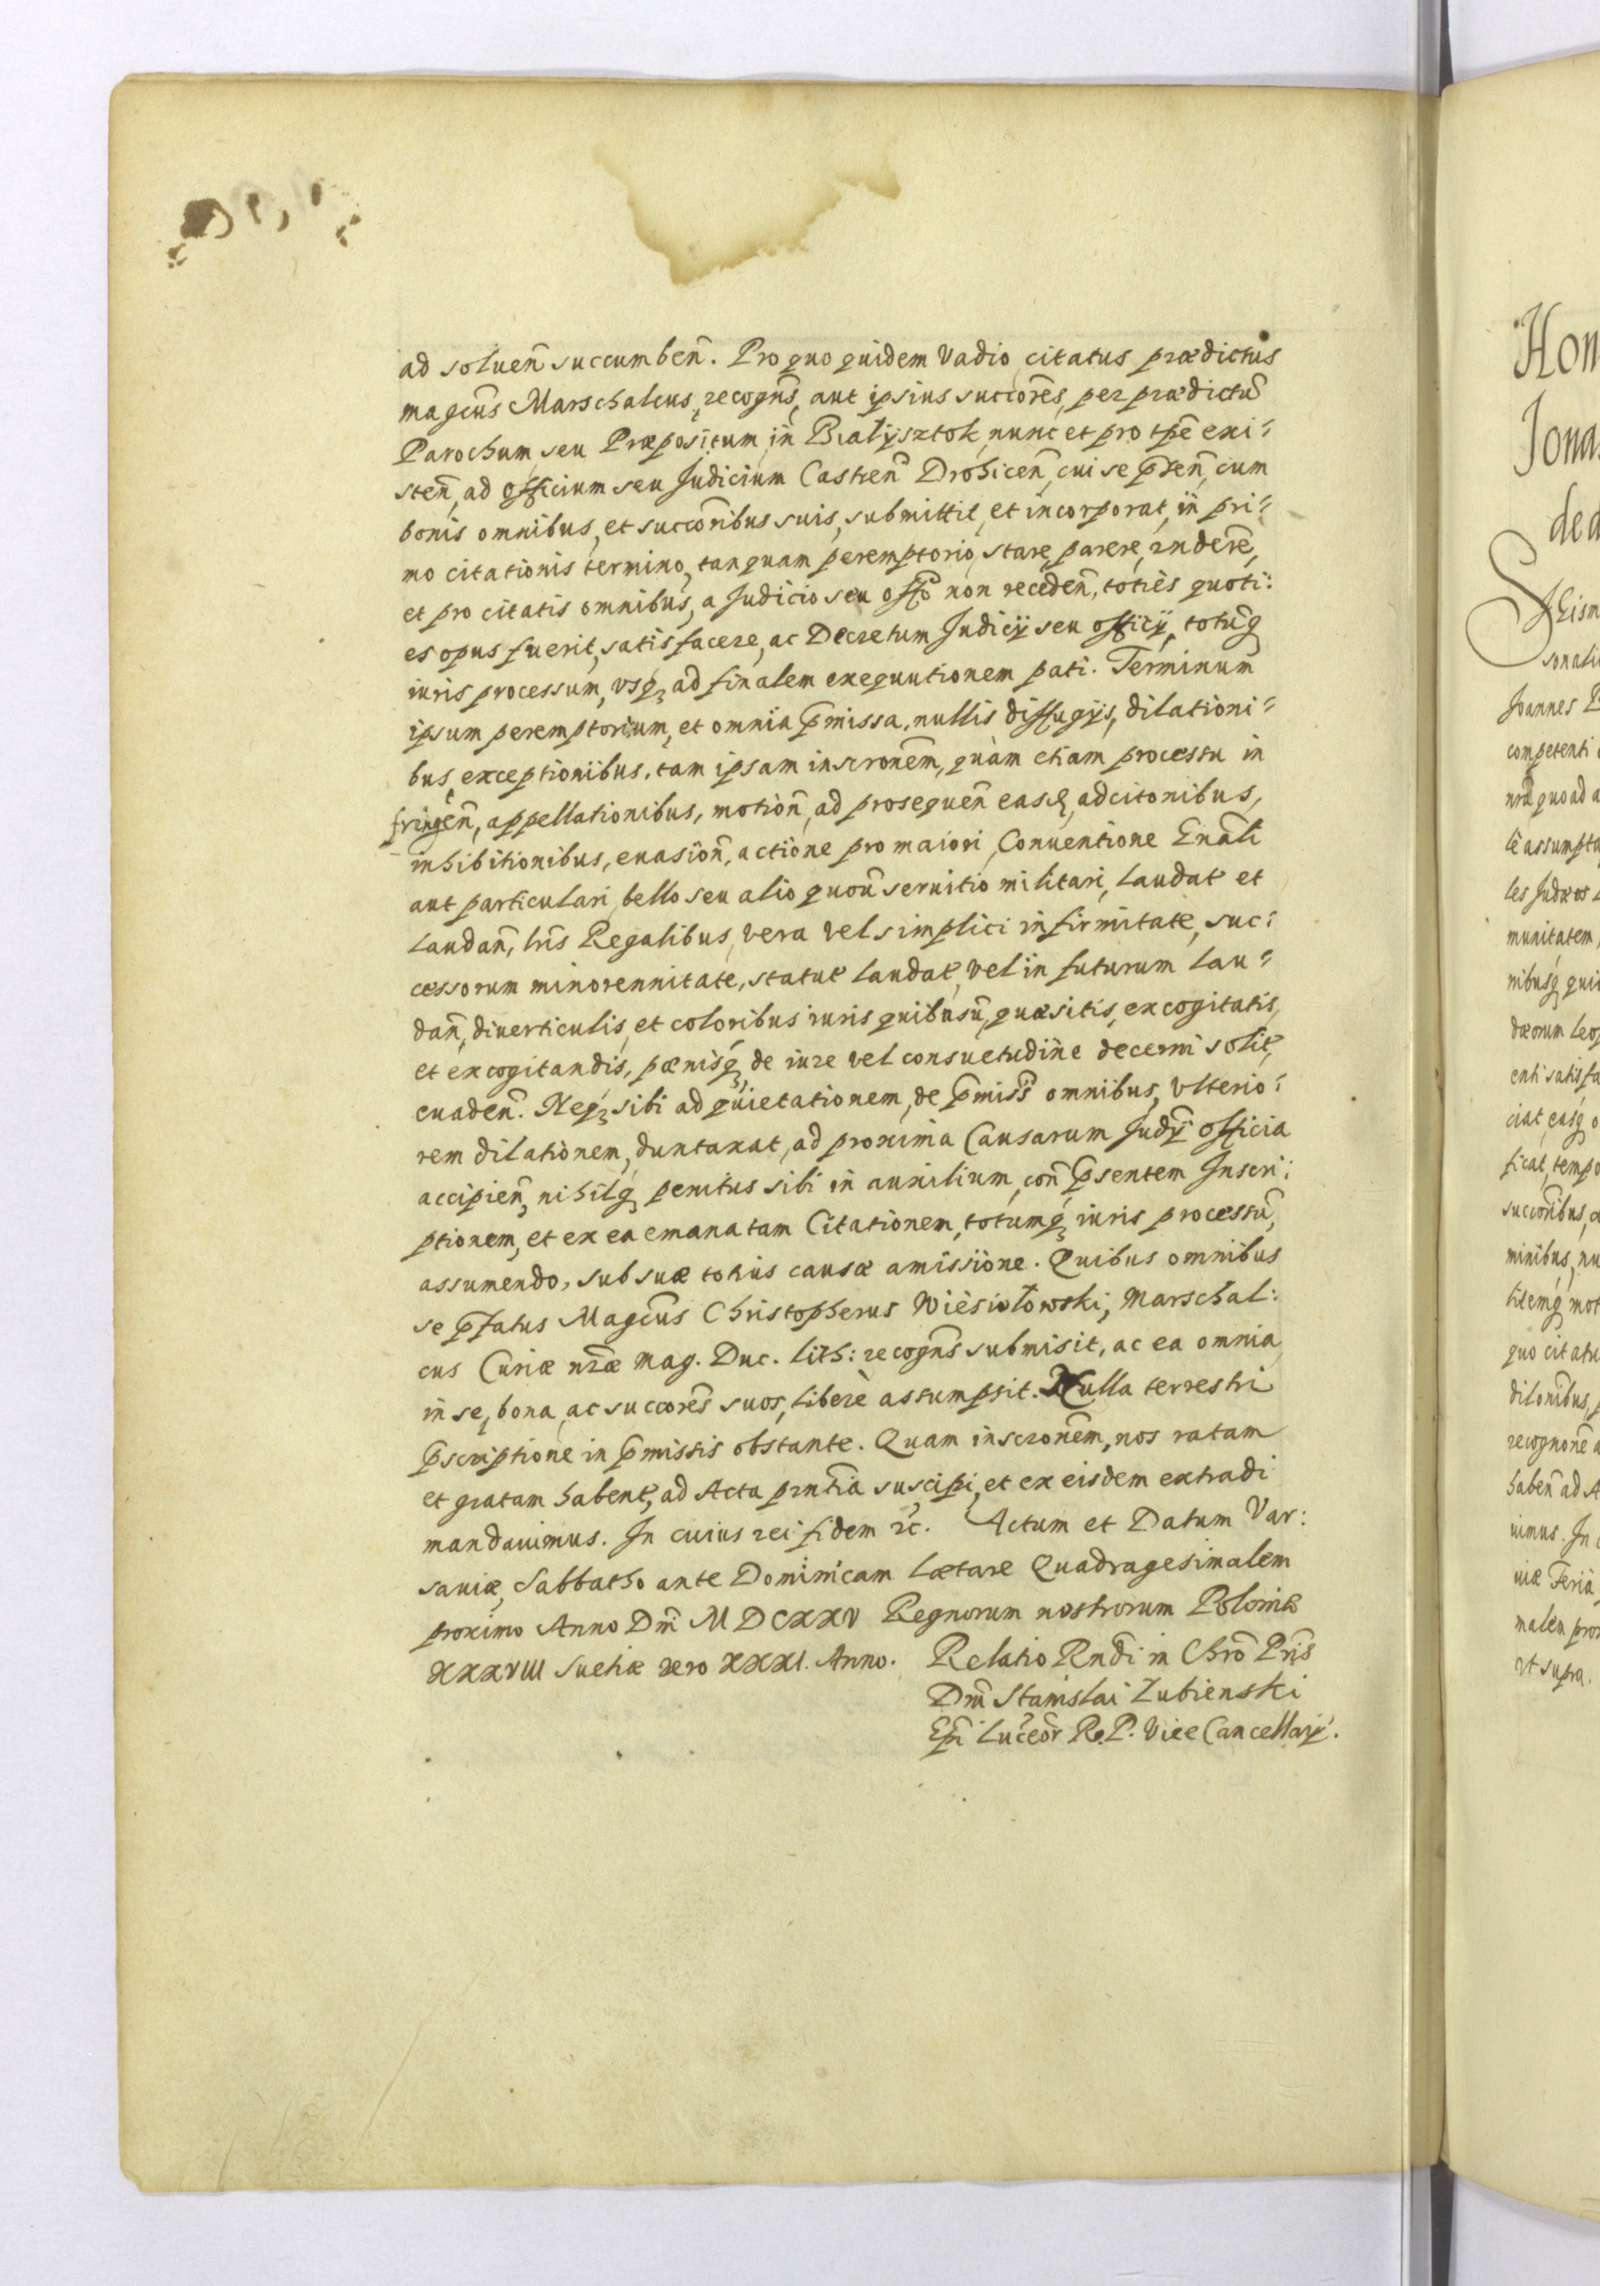 ad soluen̄ succumben̄. Pro quo quidem Vadio, citatus prædictus
magcūs Marschalcus, recogn̄s, aut ipsius succores̄, per prædictū
Parochum, seu Præpositum, in Bialysztok, nunc et pro tpē exi=
sten̄, ad officium seu Judicium Castren̄ Drohicen̄, cui se p̄sen̄, cum
bonis omnibus, et succorībus suis, submittit, et incorporat, in pri=
mo citationis termino, tanquam peremptorio, stare, parere, rndere,̄
et pro citatis omnibus, a Judicio seu offo̅ non receden̄, toties quoti:
es opus fuerit, satisfacere, ac Decretum Judicij seu officij, totumq̄
iuris processum, vsq₃ ad finalem exequutionem pati. Terminum
ipsum peremptorium, et omnia p̄missa, nullis diffugijs, dilationi=
bus, exceptionibus, tam ipsam inscronem̄, quàm etiam processu in
fringen̄, appellationibus, motion̄, ad prosequen̄ easq₃, adcitonibus,
inhibitionibus, euasion̄, actione pro maiori, Conuentione Gnāli
aut particulari, bello seu alio quouı̄ seruitio militari, laudat et
laudan̄, lrı̄s Regalibus, vera vel simplici infirmitate, suc:
cessorum minorennitate, statut laudat, vel in futurum lau=
dan̄, diuerticulis, et coloribus iuris quibusū, quæsitis, excogitatis,
et excogitandis, pœnisq₃ de iure vel consuetudine decerni solit,
euaden̄. Neq₃ sibi ad quietationem, de p̄miss̄ omnibus, Vlterio:
rem dilationem, duntaxat, ad proxima Causarum Judı̄j officia
accipien̄, nihilq₃ penitus sibi in auxilium, con̄ p̄sentem Inscri:
ptionem, et ex ea emanatam Citationem, totumq₃ iuris processū,
assumendo, sub suæ totius causæ amissione. Quibus omnibus
se p̄fatus Magcūs Christopherus Wiesiołowski, Marschal:
cus Curiæ nr̄æ Mag. Duc. Lith: recogn̄s submisit, ac ea omnia
in se, bona, ac succores̄ suos, liberè assumpsit. Nulla terrestri
p̄scriptione in p̄missis obstante. Quam inscronem̄, nos ratam
et gratam habent, ad Acta prnt̄ia suscipi, et ex eisdem extradi
mandauimus. In cuius rei fidem ꝛc. Actum et Datum Var:
sauiæ, Sabbatho ante Dominicam Lætare Quadragesimalem
proximo Anno Dnı̄ MDCXXV Regnorum nostrorum Poloniæ
XXXVIII Suetiæ vero XXXI. Anno.
Relatio Rndı̄ in Chrō Prı̄s
Dnı̄ Stanislai Łubienski
Epı̄ Luceor̄ R. P. Vice Cancellarij.
Hon
Jona
de a
competenti
munitatem,
minibus, nu
ut supra.